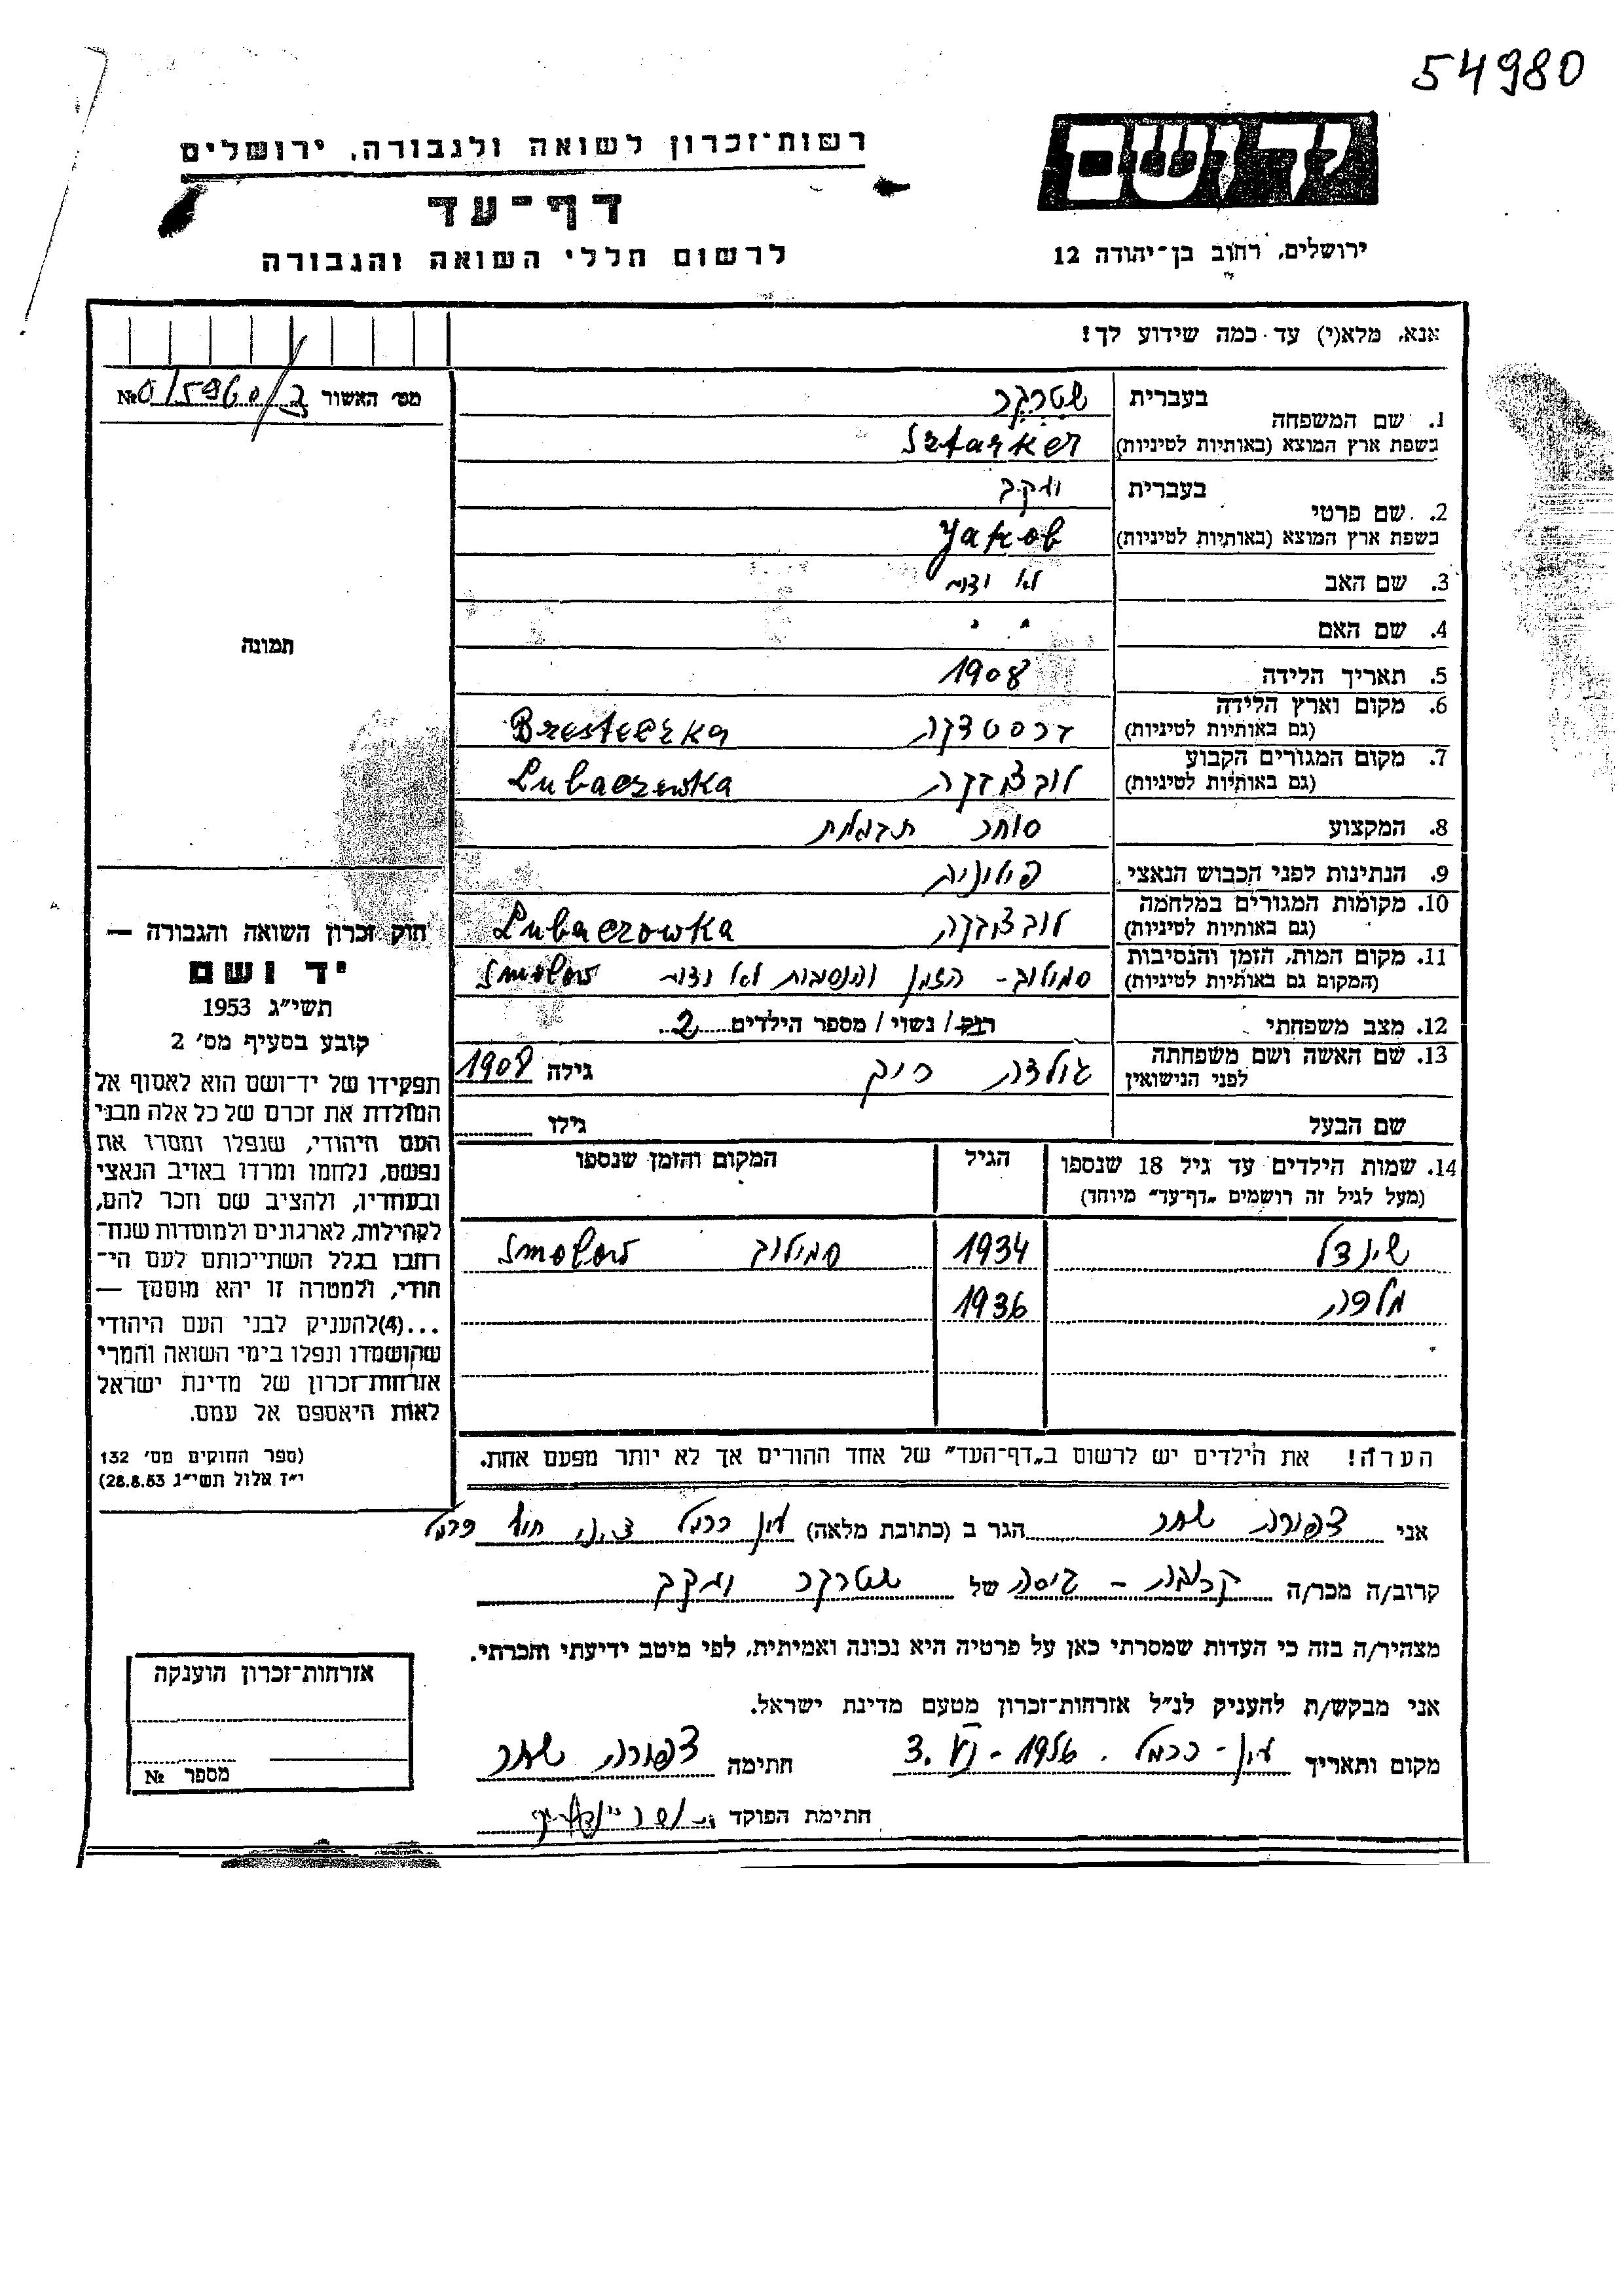 54980
יד ושם
ירושלים, רחוב בן־יהודה 12
רשות־זכרון לשואה ולגבורה, ירושלים
דף־עד
לרשום חללי השואה והגבורה
אנא, מלא(י) עד כמה שידוע לך!
מס׳ האשור №
1. שם המשפחה
בעברית שטרקר
בשפת ארץ המוצא (באותיות לטיניות) Sztarker
2. שם פרטי
בעברית יעקב
בשפת ארץ המוצא (באותיות לטיניות) Yakob
3. שם האב לא ידוע
4. שם האם " "
5. תאריך הלידה 1908
6. מקום וארץ הלידה
(גם באותיות לטיניות)
7. מקום המגורים הקבוע
(גם באותיות לטיניות) Lubaczowka
8. המקצוע סוחר
9. הנתינות לפני הכבוש הנאצי פולונית
10. מקומות המגורים במלחמה
(גם באותיות לטיניות) Lubaczowka
11. מקום המות, הזמן והנסיבות
(המקום גם באותיות לטיניות) סמולוב - הזמן והנסבות לא ידוע Smolow
12. מצב משפחתי רווק / נשוי / מספר הילדים 2
13. שם האשה ושם משפחתה
לפני הנישואין גולדה גילה 1908
שם הבעל גילו
14. שמות הילדים עד גיל 18 שנספו הגיל המקום והזמן שנספו
(מעל לגיל זה רושמים „דף־עד” מיוחד)
שינדל 1934 סמולוב Smolow
מלכה 1936
הערה! את הילדים יש לרשום ב„דף־העד” של אחד ההורים אך לא יותר מפעם אחת.
אני צפורה שחר הגר ב (כתובת מלאה) עין כרמל ד.נ. חוף כרמל
קרוב/ה מכר/ה קרובה - גיסה של שטרקר יעקב
מצהיר/ה בזה כי העדות שמסרתי כאן על פרטיה היא נכונה ואמיתית, לפי מיטב ידיעתי והכרתי.
אני מבקש/ת להעניק לנ״ל אזרחות־זכרון מטעם מדינת ישראל.
מקום ותאריך עין־כרמל. חתימה צפורה שחר
חתימת הפוקד
תמונה
חוק זכרון השואה והגבורה —
יד ושם
תשי״ג 1953
קובע בסעיף מס׳ 2
תפקידו של יד־ושם הוא לאסוף אל
המולדת את זכרם של כל אלה מבני
העם היהודי, שנפלו ומסרו את
נפשם, נלחמו ומרדו באויב הנאצי
ובעוזריו, ולהציב שם וזכר להם,
לקהילות, לארגונים ולמוסדות שנח־
רבו בגלל השתייכותם לעם הי־
הודי, ולמטרה זו יהא מוסמך —
...(4) להעניק לבני העם היהודי
שהושמדו ונפלו בימי השואה והמרי
אזרחות־זכרון של מדינת ישראל
לאות היאספם אל עמם.
(ספר החוקים מס׳ 132
י״ז אלול תשי״ג 28.8.53)
אזרחות־זכרון הוענקה
מספר №